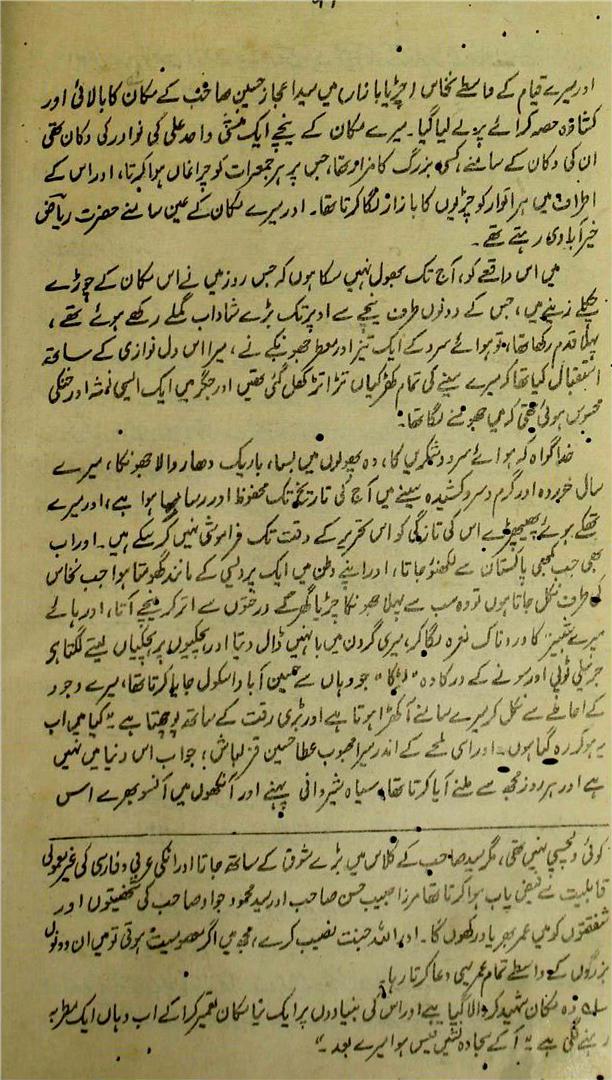 اور میرے قیام کے واسطے نخاس (چڑیا بازار) میں سید اعجاز حسین صاحب کے مکان کا بالائی اور
کشادہ حصہ کرائے پر لے لیا گیا۔ میرے مکان کے نیچے ایک منشی واحد علی کی نوادر کی دکان تھی
ان کی دکان کے سامنے کسی بزرگ کا مزار تھا، جس پر ہر جمعرات کو چراغاں ہوا کرتا، اور اس کے
اطراف میں ہر اتوار کو چڑیوں کا بازار لگا کرتا تھا۔ اور میرے مکان کے عین سامنے حضرت ریاض
خیرآبادی رہتے تھے۔
میں اس واقعے کو، آج تک بھول نہیں سکا ہوں کہ جس روز میں نے اس مکان کے چوڑے
چکلے زینے میں، جس کے دونوں طرف نیچے سے اوپر تک بڑے شاداب گملے رکھے ہوئے تھے،
پہلا قدم رکھا تھا، تو ہوائے سرد کے ایک تیز اور معطر جھونکے نے، میرا اس دل نوازی کے ساتھ
استقبال کیا تھا کہ میرے سینے کی تمام کھڑکیاں تڑاتڑ کھل گئی تھیں اور جگر میں ایک ایسی خنکی
محسوس ہوئی تھی کہ میں جھومنے لگا تھا۔
خدا گواہ کہ ہوائے سرد و شکریں کا، وہ پھولوں میں بسا، باریک دھار والا جھونکا، میرے
سال خوردہ اور گرم و سرد کشیدہ سینے میں آج کی تاریخ تک محفوظ اور رسا بسا ہوا ہے، اور میرے
تھکے ہوئے پھیپھڑے اس کی تازگی کو اس تحریر کے وقت تک فراموش نہیں کر سکے ہیں۔ اور اب
بھی جب کبھی پاکستان سے لکھنؤ جاتا، اور اپنے وطن میں ایک پردیسی کے مانند گھومتا ہوا جب نخاس
کی طرف نکل جاتا ہوں تو وہ سب سے پہلا جھونکا چڑیا گھر کے درختوں سے اتر کر نیچے آتا، اور ہائے
میرے شبیر کا دردناک نعرہ لگا کر، میری گردن میں بانہیں ڈال دیتا اور ہچکیوں پر ہچکیاں لینے لگتا ہے
جرنیلی ٹوپی اور سونے کے در کا وہ "لڑکا" جو وہاں سے حسین آباد اسکول جایا کرتا تھا، میرے وجود
کے احاطے سے نکل کر میرے سامنے آ کھڑا ہوتا ہے اور بڑی رقت کے ساتھ پوچھتا ہے "کیا میں اب
یہ ہو کر رہ گیا ہوں" اور اسی لمحے کے اندر میرا محبوب عطا حسین قزلباش؛ جو اب اس دنیا میں نہیں
ہے اور ہر روز مجھ سے ملنے آیا کرتا تھا سیاہ شیروانی پہنے اور آنکھوں میں آنسو بھرے اس
کوئی دلچسپی نہیں تھی، مگر سید صاحب کے کلاس میں بڑے شوق کے ساتھ جاتا اور انکی عربی و فارسی کی غیر معمولی
قابلیت سے فیض یاب ہوا کرتا تھا مرزا حبیب حسن صاحب اور سید محمود جواد صاحب کی شخصیتوں اور
شفقتوں کو میں عمر بھر یاد رکھوں گا۔ اور اللہ جنت نصیب کرے، مجھ میں اگر معصومیت ہوتی تو میں ان دونوں
بزرگوں کے واسطے تمام عمر یہی دعا کرتا رہا۔
وہ مکان شہید کر ڈالا گیا ہے اور اس کی بنیادوں پر ایک نیا مکان تعمیر کرا کے اب وہاں ایک مطربہ
رہنے لگی ہے "آ کے سجادہ نشیں قیس ہوا میرے بعد"